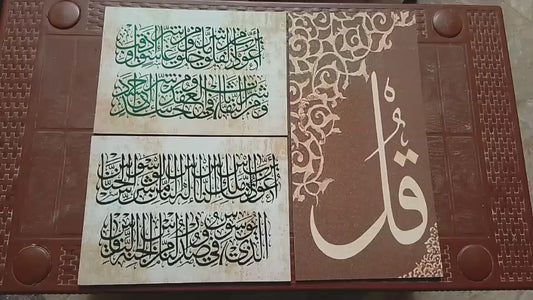 قُلْ
أعوذ برب الفلق من شر ما خلق ومن شر غاسق إذا وقب
ومن شر النفاثات في العقد ومن شر حاسد إذا حسد
أعوذ برب الناس ملك الناس إله الناس من شر الوسواس الخناس
الذي يوسوس في صدور الناس من الجنة والناس